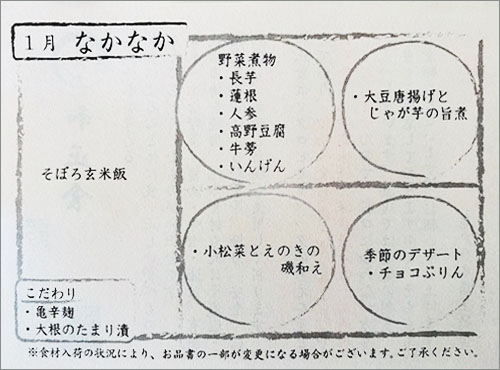 1月 なかなか
野菜煮物
・長芋
・蓮根
・人参
・高野豆腐
・牛蒡
・いんげん
・大豆唐揚げと
じゃが芋の旨煮
そぼろ玄米飯
・小松菜とえのきの
磯和え
季節のデザート
・チョコぷりん
こだわり
・亀辛麹
・大根のたまり漬
※食材入荷の状況により、お品書の一部が変更になる場合がございます。ご了承ください。